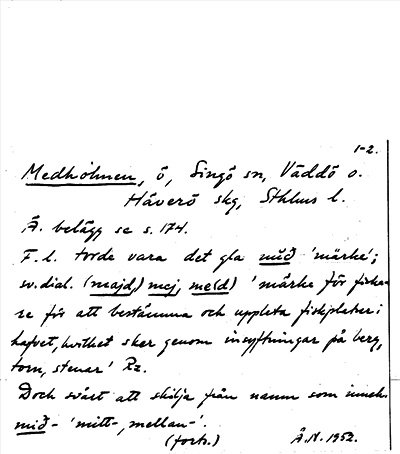 1-2.
Medholmen, ö, Singö sn, Väddö o.
Häverö skg, Sthlms l.
Ä. belägg se s. 174.
F. l. torde vara det gla mið 'märke';
sv. dial. (majd,) mej, me(d) 'märke för fiska-
re för att bestämma och uppleta fiskplatser i
hafvet, hvilket sker genom insyftningar på berg,
torn, stenar' Rz.
Doch svårt att skilja från namn som inneh.
mið- 'mitt-, mellan-'.
(forts.) Å.N. 1952.